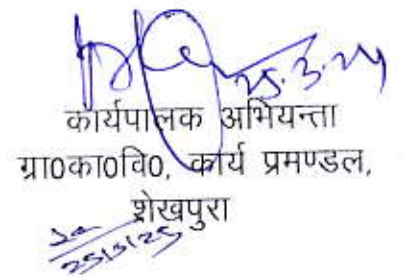 25.3.24
कार्यपालक अभियन्ता
ग्रा0का0वि0, कार्य प्रमण्डल,
शेखपुरा
25/3/25